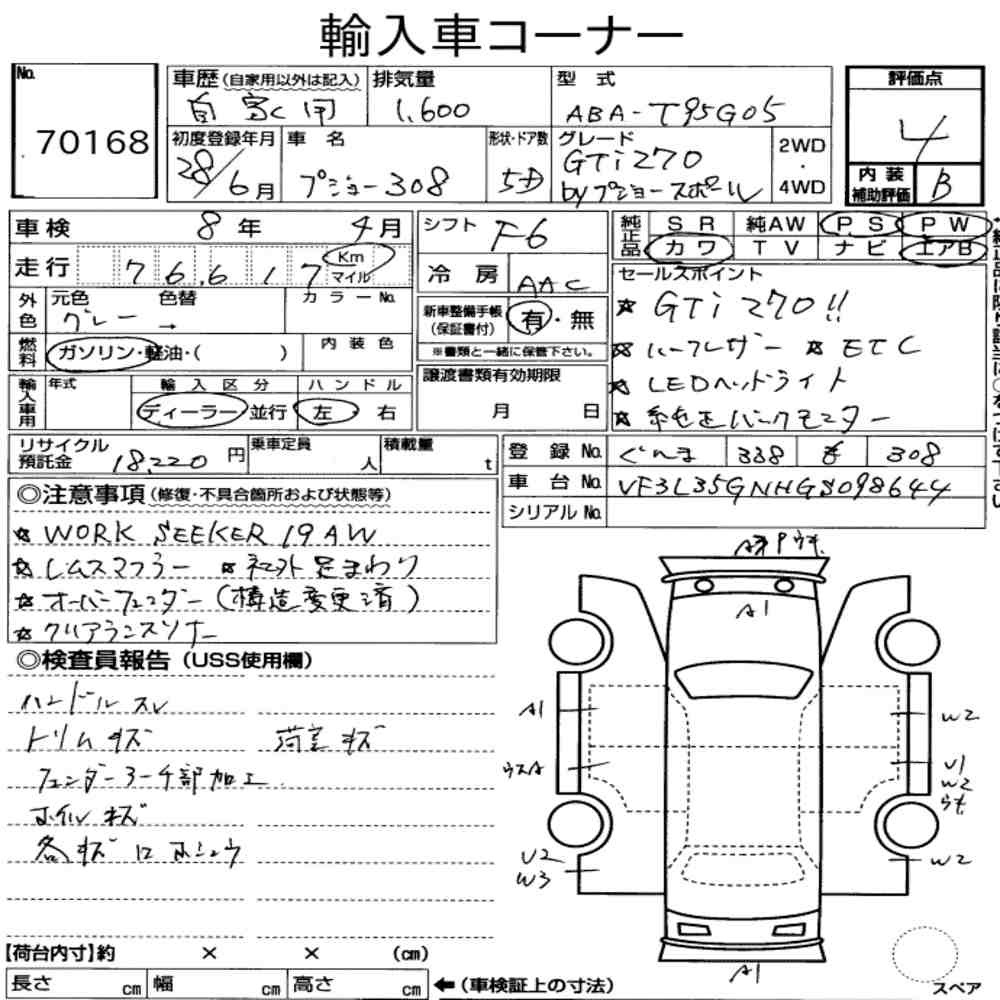 輸入車コーナー
No. 70168
車歴(自家用以外は記入) 排気量 型式 評価点
自家用 1,600 ABA-T95G05 4
初度登録年月 車名 形状・ドア数 グレード 2WD・4WD
28/6月 プジョー308 5D GTi270 byプジョースポール
内装補助評価 B
車検 8年 4月
シフト F6
純正品 SR 純AW PS PW
カワ TV ナビ エアB
走行 76,617 Km マイル
冷房 AAC
セールスポイント
外色 元色 色替 カラーNo.
グレー →
新車整備手帳(保証書付) 有・無
※書類と一緒に保管下さい。
★GTi270!!
★ハーフレザー ★ETC
★LEDヘッドライト
★純正バックモニター
燃料 ガソリン・軽油・( ) 内装色
輸入車用 年式 輸入区分 ハンドル
ディーラー 並行 左 右
譲渡書類有効期限
月 日
リサイクル預託金 18,220円 乗車定員 人 積載量 t
登録No. ぐんま 338 308
車台No. VF3L35GNHGS098644
シリアルNo.
◎注意事項(修復・不具合箇所および状態等)
★WORK SEEKER 19AW
★レムスマフラー ★社外足まわり
★オーバーフェンダー(構造変更済)
★クリアランスソナー
◎検査員報告(USS使用欄)
ハンドルスレ
トリムキズ 荷室キズ
フェンダーアーチ部加工
ホイルキズ
各キズ
A1
A1 W2
ウスA U1
W2
U2 W2
W3
A1
スペア
【荷台内寸】約 × × (cm)
長さ cm 幅 cm 高さ cm ←(車検証上の寸法)